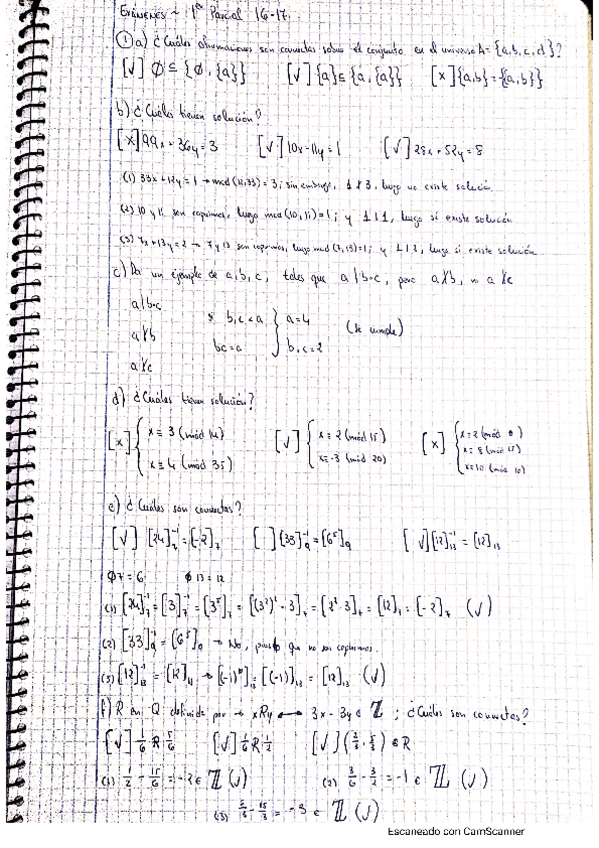 Exámenes ~ 1er Parcial 16-17
① a) ¿Cuáles afirmaciones son correctas sobre el conjunto en el universo A = {a,b,c,d}?
[√] ∅ ⊆ {∅, {a}} [√] {a} ⊆ {a, {a}} [x] {a,b} = {{a,b}}
b) ¿Cuáles tienen solución?
[x] 99x + 36y = 3 [√] 10x - 11y = 1 [√] 28x + 52y = 8
(1) 33x + 12y = 1 → mcd (12,33) = 3; sin embargo, luego no existe solución
(2) 10 y 11 son coprimos, luego mcd (10,11) = 1; y 1|1, luego sí existe solución
(3) 7x + 13y = 2 → 7 y 13 son coprimos, luego mcd (7,13) = 1; y 1|2, luego sí existe solución
c) Da un ejemplo de a, b, c, tales que a | b·c, pero a∤b, ni a∤c
a | b·c
b, c < a } a = 4 (se cumple)
a∤b
bc = a } b, c = 2
a∤c
d) ¿Cuáles tienen solución?
[x] { x ≡ 3 (mód 14) [√] { x ≡ 2 (mód 15) [x] { x ≡ 2 (mód
x ≡ 4 (mód 35) x ≡ -3 (mód 20) x ≡ 8 (mód 15)
x ≡ 10 (mód 10)
e) ¿Cuáles son correctas?
[√] [24]₇⁻¹ = [-2]₇ [ ] [33]₉⁻¹ = [6⁵]₉ [√] [12]₁₃⁻¹ = [12]₁₃
φ7 = 6 φ13 = 12
(1) [24]₇⁻¹ = [3]₇⁻¹ = [3⁵]₇ = [(3²)² · 3]₇ = [2² · 3]₇ = [12]₇ = [-2]₇ (√)
(2) [33]₉⁻¹ = [6⁵]₉ → No, puesto que no son coprimos.
(3) [12]₁₃⁻¹ = [12]₁₃ → [(-1)]₁₃ = [12]₁₃ (√)
f) R en Q definida por → xRy ⟷ 3x - 3y ∈ ℤ; ¿Cuáles son correctas?
[√] 1/6 R 5/6 [√] 1/6 R 1/2 [√] ∈ R
(1) 1/2 - 15/6 = -2 ∈ ℤ (√) (2) 3/6 - 3/2 = -1 ∈ ℤ (√)
(3) ∈ ℤ (√)
Escaneado con CamScanner